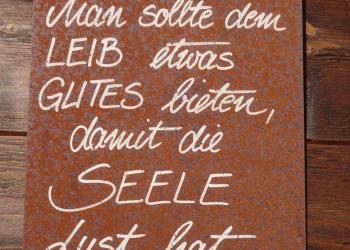 Man sollte dem
LEIB etwas
GUTES bieten,
damit die
SEELE
Lust hat